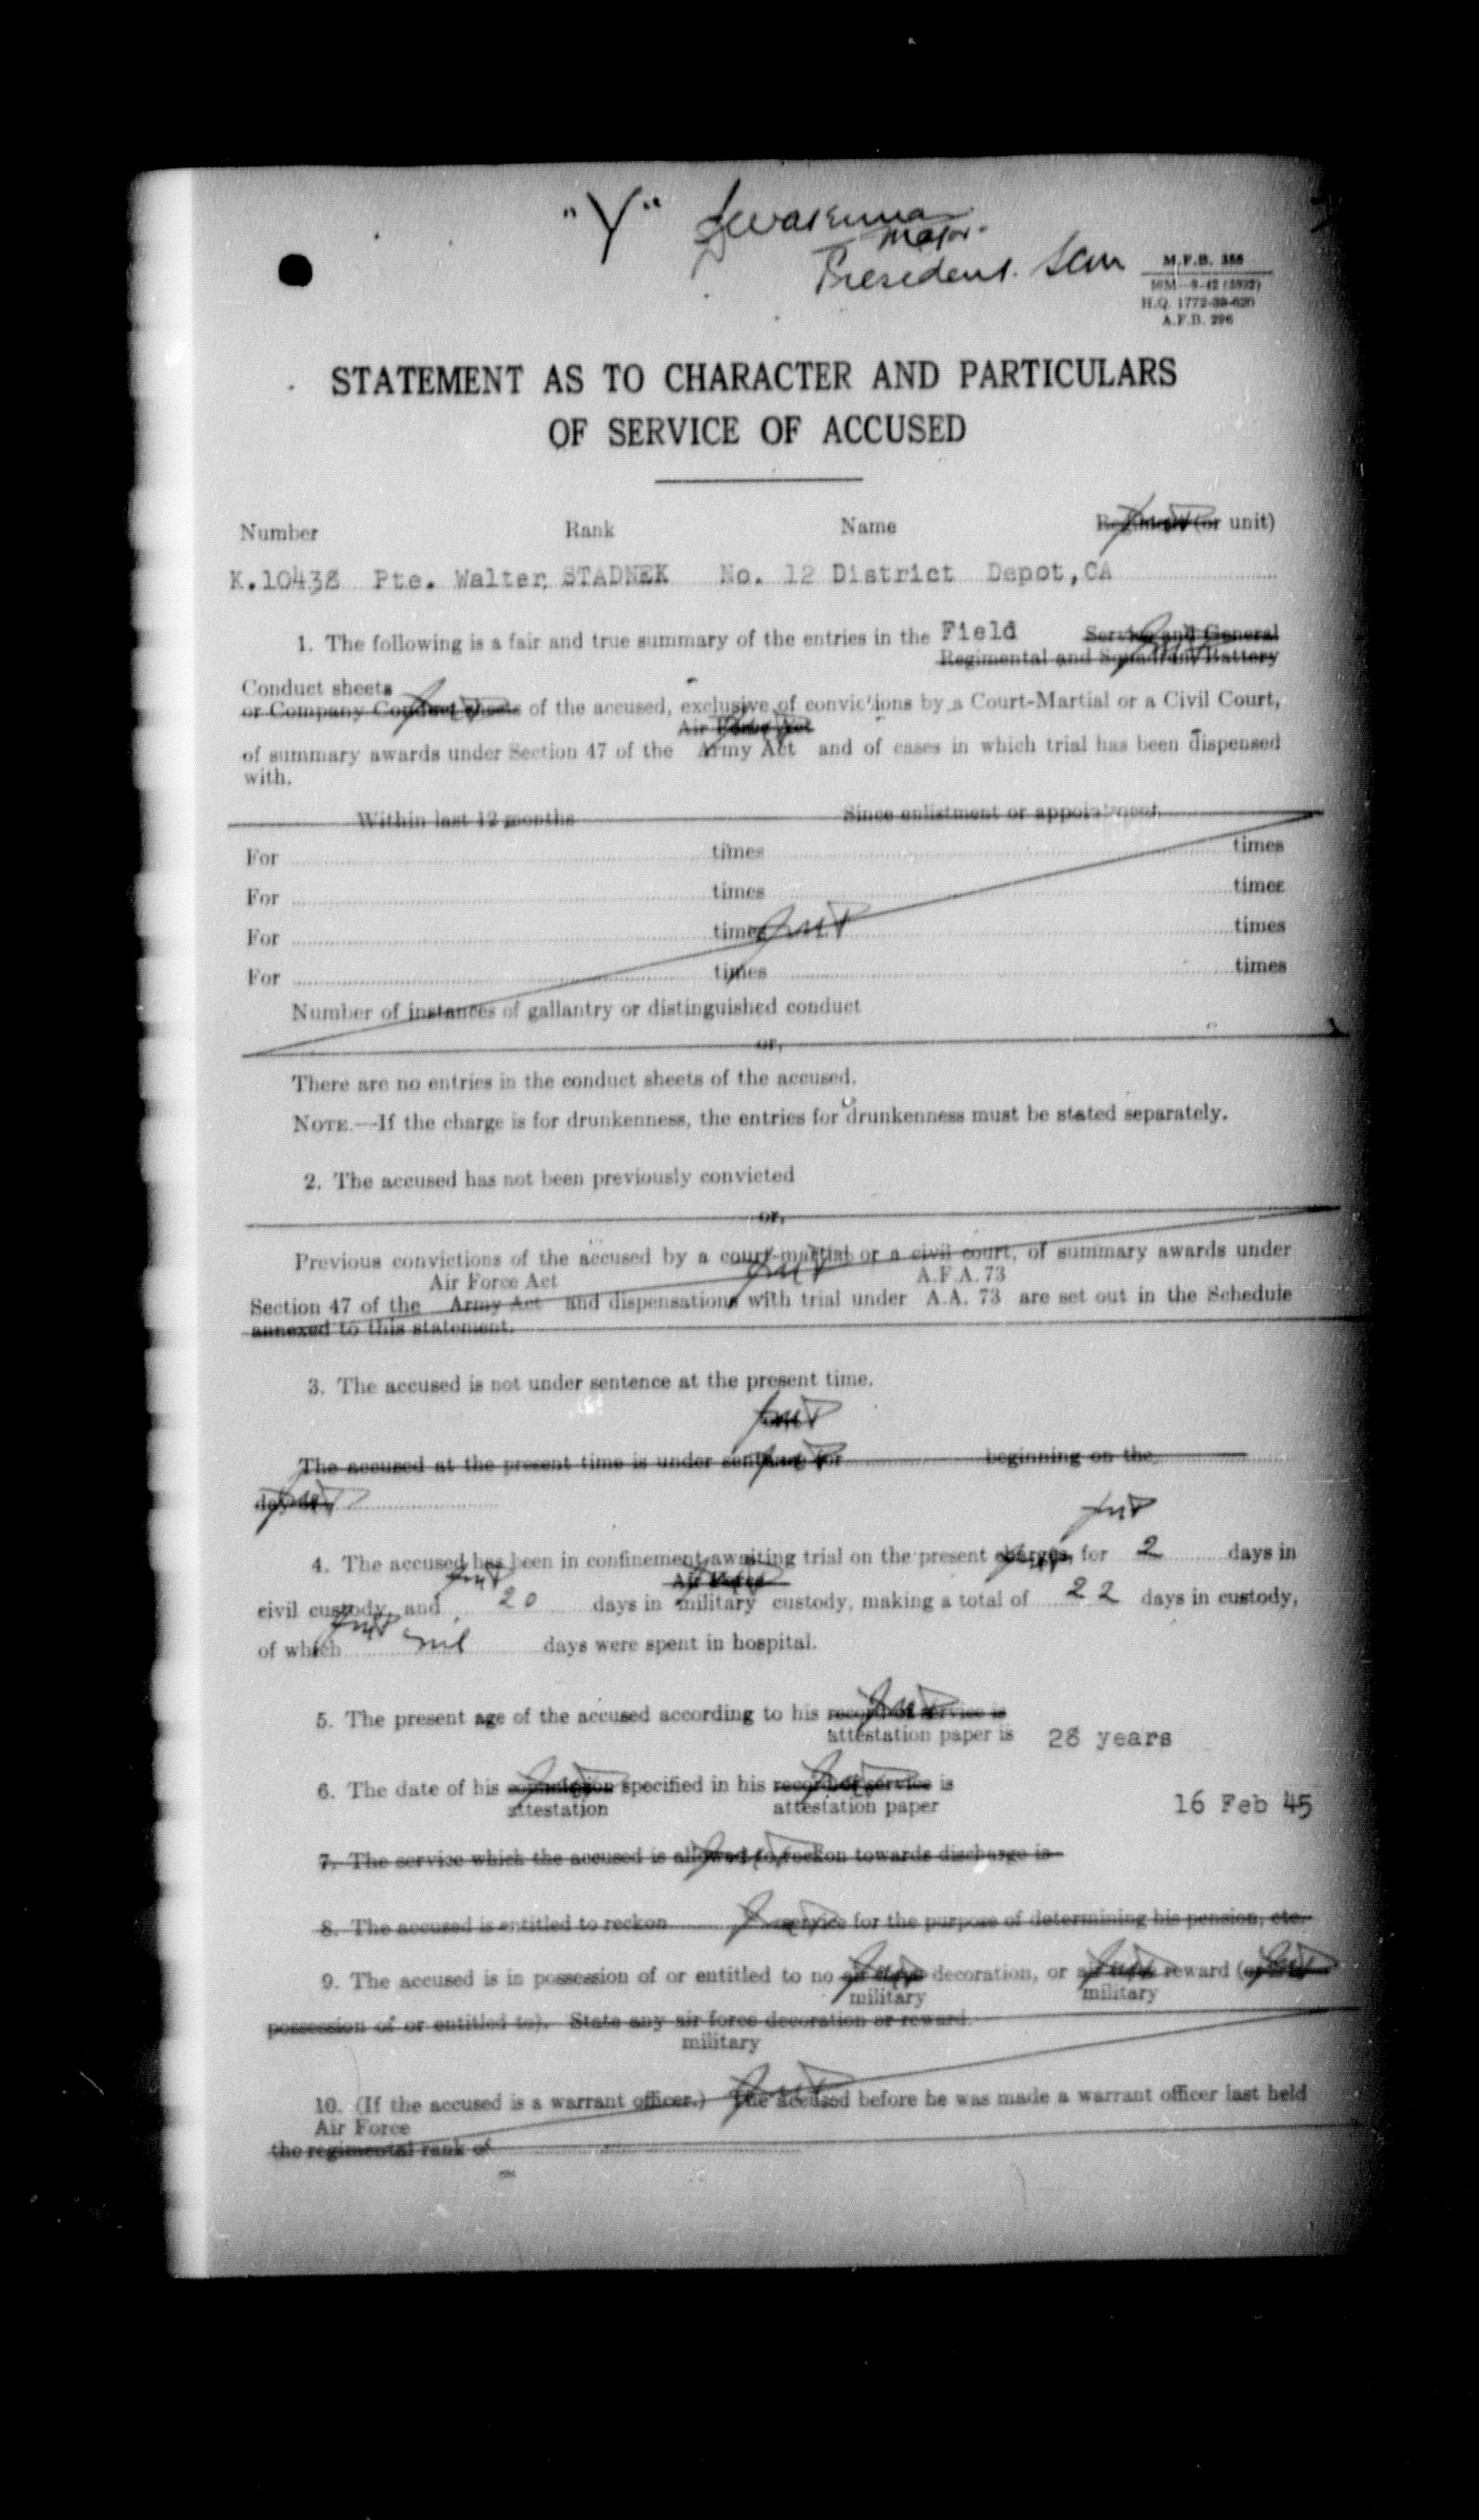 "Y"
Major.
President. SCM
M.F.B. 355
H.Q. 1772-39-620
A.F.B. 296
STATEMENT AS TO CHARACTER AND PARTICULARS
OF SERVICE OF ACCUSED
Number Rank Name Regiment (or unit)
K.10438 Pte. Walter STADNEK No. 12 District Depot,CA
1. The following is a fair and true summary of the entries in the Field Service and General
Regimental and Squadron/Battery
Conduct sheets
or Company Conduct sheets of the accused, exclusive of convictions by a Court-Martial or a Civil Court,
Air Force Act
of summary awards under Section 47 of the Army Act and of cases in which trial has been dispensed
with.
Within last 12 months Since enlistment or appointment
For times times
For times times
For times times
For times times
Number of instances of gallantry or distinguished conduct
or,
There are no entries in the conduct sheets of the accused.
NOTE.—If the charge is for drunkenness, the entries for drunkenness must be stated separately.
2. The accused has not been previously convicted
or,
Previous convictions of the accused by a court-martial or a civil court, of summary awards under
Air Force Act A.F.A. 73
Section 47 of the Army Act and dispensations with trial under A.A. 73 are set out in the Schedule
annexed to this statement.
3. The accused is not under sentence at the present time.
The accused at the present time is under sentence for beginning on the
day of
4. The accused has been in confinement awaiting trial on the present charges, for 2 days in
Air Force
civil custody, and 20 days in military custody, making a total of 22 days in custody,
of which nil days were spent in hospital.
5. The present age of the accused according to his record of service is
attestation paper is 28 years
6. The date of his commission specified in his record of service is
attestation attestation paper 16 Feb 45
7. The service which the accused is allowed to reckon towards discharge is
8. The accused is entitled to reckon service for the purpose of determining his pension, etc.
9. The accused is in possession of or entitled to no air force decoration, or air force reward
military military
possession of or entitled to). State any air force decoration or reward.
military
10. (If the accused is a warrant officer.) The accused before he was made a warrant officer last held
Air Force
the regimental rank of